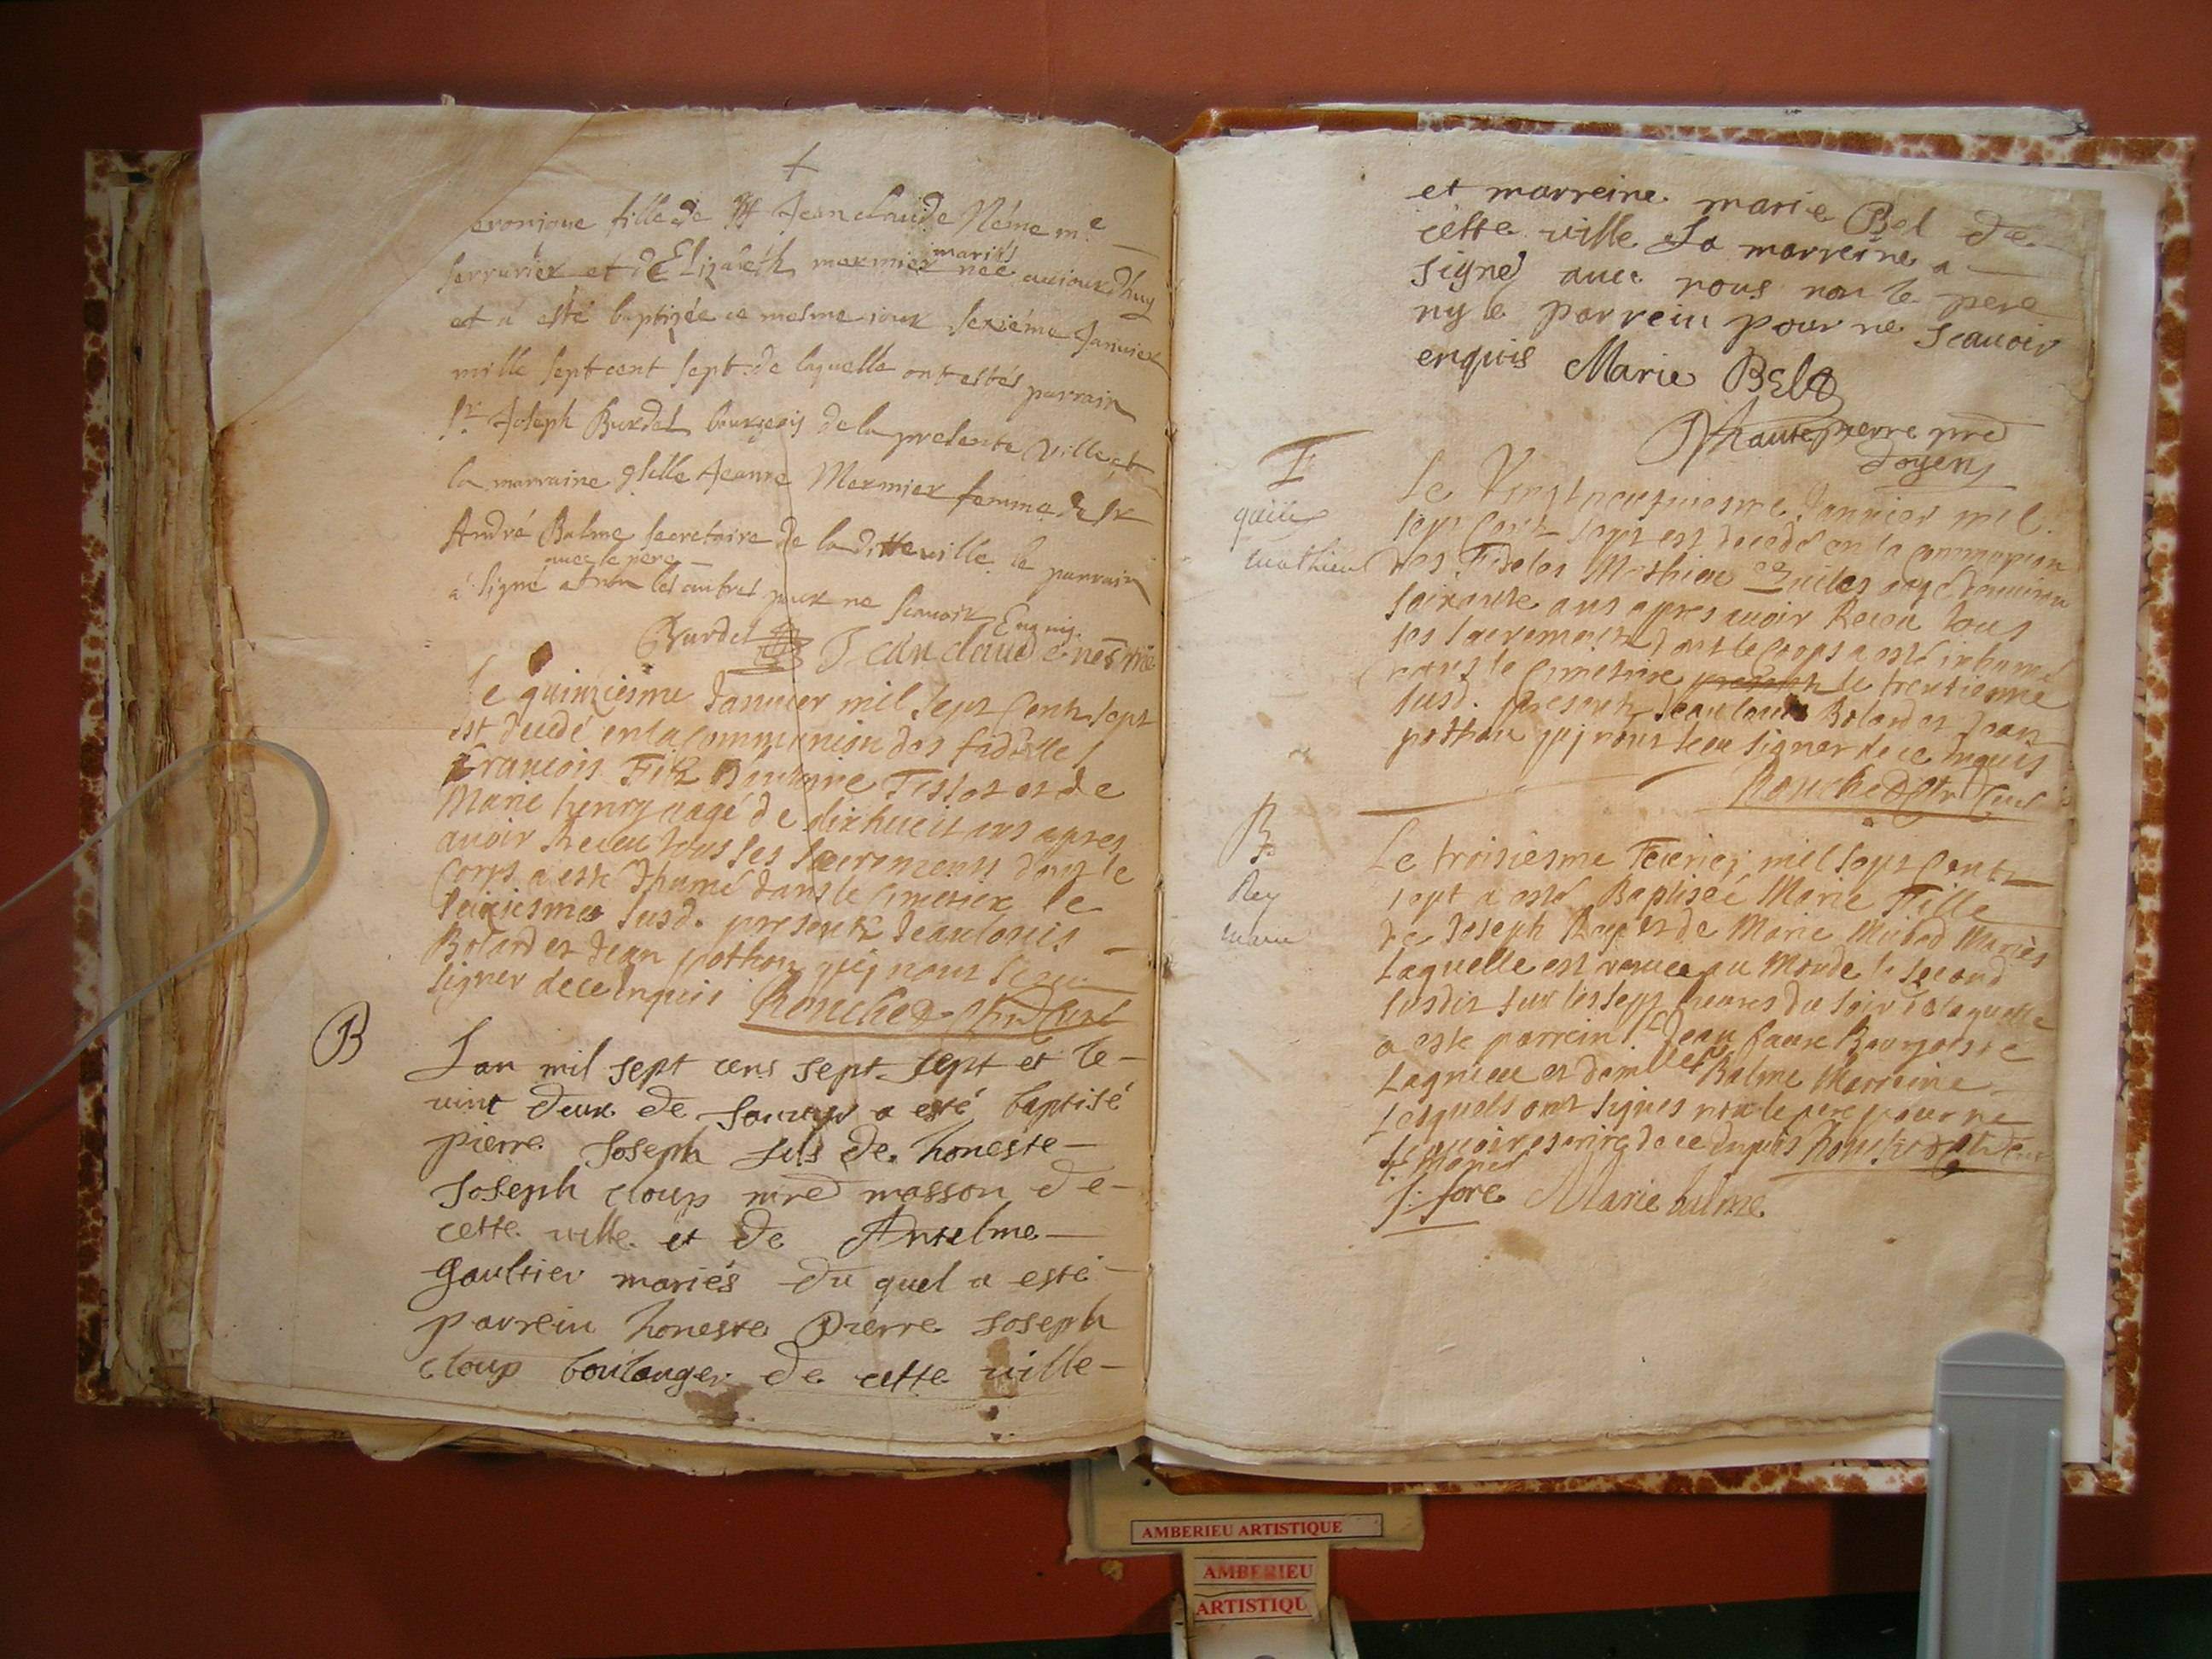 +
eronique fille de Mr Jean claude Néme me
serrurier et d'Elizabeth mermier mariés née aujourdhuy
et a esté baptizée ce mesme jour sexiéme Janvier
mille sept cent sept. de laquelle ont estés parrain
Sr. Joseph Burdet bourgeois de la presente ville et
la marraine Jeanne Mermier femme de Sr
André Balme secretaire de la ditte ville le parrain
avec le pere
a signé et non les autres pour ne scauoir Enquis.
Burdet Jean claude neme
Le quinziesme Januier mil sept Cent sept
est decedé en la Communion des fidelles
francois Filz Tissot et de
Marie henry aagé de dixhuict ans apres
avoir Receu tous ses sacrements dont le
Corps a esté Ihumé dans le Cimetiere le
seiziesme susd. presentz Jean louis
Bolard et Jean pothon qui n'ont sceu
signer de ce enquis Rouchedz ptre Curé
B
Lan mil sept cens sept sept et le
vint deux de Janvyer a esté baptisé
pierre Joseph fils de honeste
Joseph cloup mre masson de
cette ville et de Anselme
Gaultier mariés du quel a esté
parrein honeste Pierre Joseph
cloup boulanger de cette ville
et marreine marie Bel de
cette ville La marreine a
signé auec nous non le pere
ny le parrein pour ne scauoir
enquis Marie Bel
hautepierre pre
doyen
E
quilles
mathieu
Le Vingt neufuiesme Januier mil
sept Cent sept est decedé en la Communion
des Fideles Mathieu Quilles aagé d'enuiron
soixante ans apres auoir Receu tous
ses sacrements dont le Corps a esté inhumé
dans le Cimetiere present le trentiesme
susd. presents Jean louis Bolard et Jean
pothon qui n'ont sceu signer de ce enquis
Rouchedz ptre Curé
B
Rey
marie
Le troisiesme Feurier mil sept Cent
sept a esté Baptisée Marie Fille
de Joseph Rey et de Marie Mariés
Laquelle est venue au Monde le second
susdit sur les sept heures du soir de laquelle
a este parrein Sr Jean faure Bourgois de
Lagnieu et damlle Balme Marreine
Lesquels ont signés non le pere pour ne
scauoir escrire de ce enquis Rouchedz ptre Curé
J: fore Marie balme
AMBERIEU ARTISTIQUE
AMBERIEU
ARTISTIQU